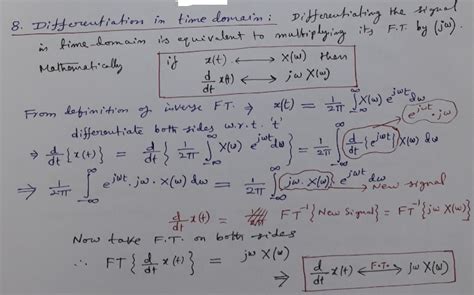 8. Differentiation in time domain: Differentiating the signal
in time-domain is equivalent to multiplying its F.T. by (jω).
Mathematically if x(t) ⟷ X(ω) then
d/dt x(t) ⟷ jω X(ω)
From definition of inverse FT. → x(t) = 1/2π ∫_{-∞}^{∞} X(ω) e^{jωt} dω
differentiate both sides w.r.t. 't'
e^{jωt}·jω
⇒ d/dt {x(t)} = d/dt { 1/2π ∫_{-∞}^{∞} X(ω) e^{jωt} dω } = 1/2π ∫_{-∞}^{∞} d/dt {e^{jωt}} X(ω) dω
⇒ 1/2π ∫_{-∞}^{∞} e^{jωt}·jω·X(ω) dω = 1/2π ∫_{-∞}^{∞} (jω·X(ω)) e^{jωt} dω
New signal
d/dt x(t) = FT^{-1} {New Signal} = FT^{-1} {jω X(ω)}
Now take F.T. on both sides
∴ FT { d/dt x(t) } = jω X(ω)
⇒ d/dt x(t) ⟷ F.T. jω X(ω)